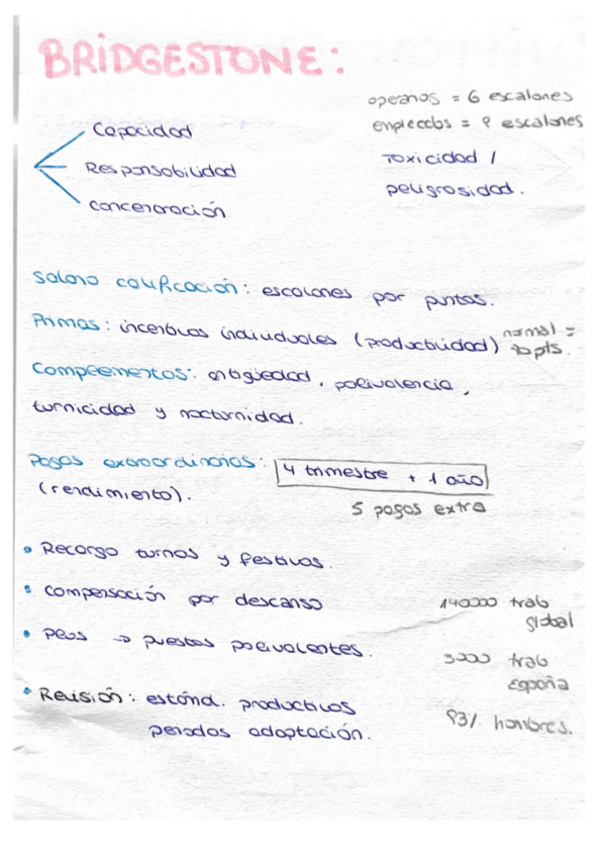 BRIDGESTONE:
operarios = 6 escalones
empleados = 9 escalones
Capacidad
Responsabilidad
Concentración
Toxicidad /
peligrosidad.
Salario calificación: escalones por puntos.
Primas: incentivos individuales (productividad)
normal =
pts.
Complementos: antigüedad, polivalencia,
turnicidad y nocturnidad.
Pagas extraordinarias: 4 trimestre + 1 año
(rendimiento).
5 pagas extra
• Recargo turnos y festivos.
• Compensación por descanso
• → puestos polivalentes.
• Revisión: estánd. productivos
periodos adaptación.
140000 trab
global
3000 trab
España
93% hombres.